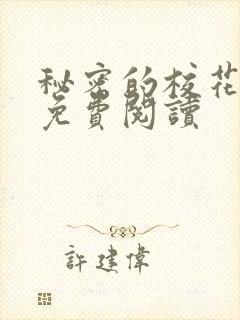 秘密的校花
免費閱讀
許建偉